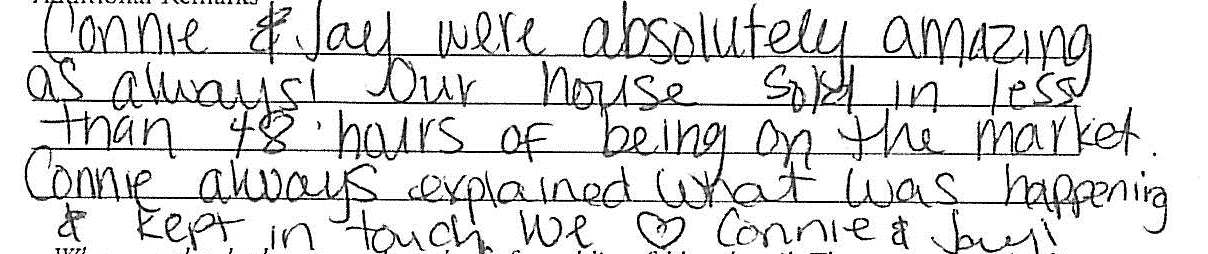 Additional Remarks
Connie & Jay were absolutely amazing
as always! Our house sold in less
than 48 hours of being on the market.
Connie always explained what was happening
& kept in touch. We ♡ Connie & Jay!